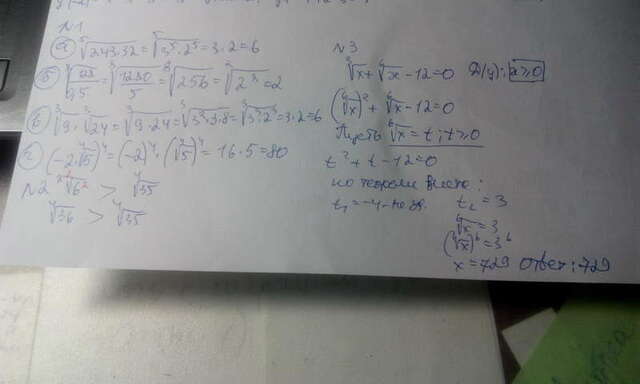 N1
а) ⁵√243·32 = ⁵√3⁵·2⁵ = 3·2=6
= ⁸√1280/5 = ⁸√256 = ⁸√2⁸ = 2
в) ³√9 · ³√24 = ³√9·24 = ³√3²·3·8 = ³√3³·2³ = 3·2=6
г) (-2·⁴√5)⁴ = (-2)⁴ · (⁴√5)⁴ = 16·5=80
N2 √6² > ⁴√35
⁴√36 > ⁴√35
N3
³√x + ⁶√x - 12=0 Д(у): x≥0
(⁶√x)² + ⁶√x - 12=0
Пусть ⁶√x = t; t≥0
t² + t - 12=0
по теореме Виета:
t₁ = -4 - не уд. t₂ = 3
⁶√x = 3
(⁶√x)⁶ = 3⁶
x = 729 Ответ: 729